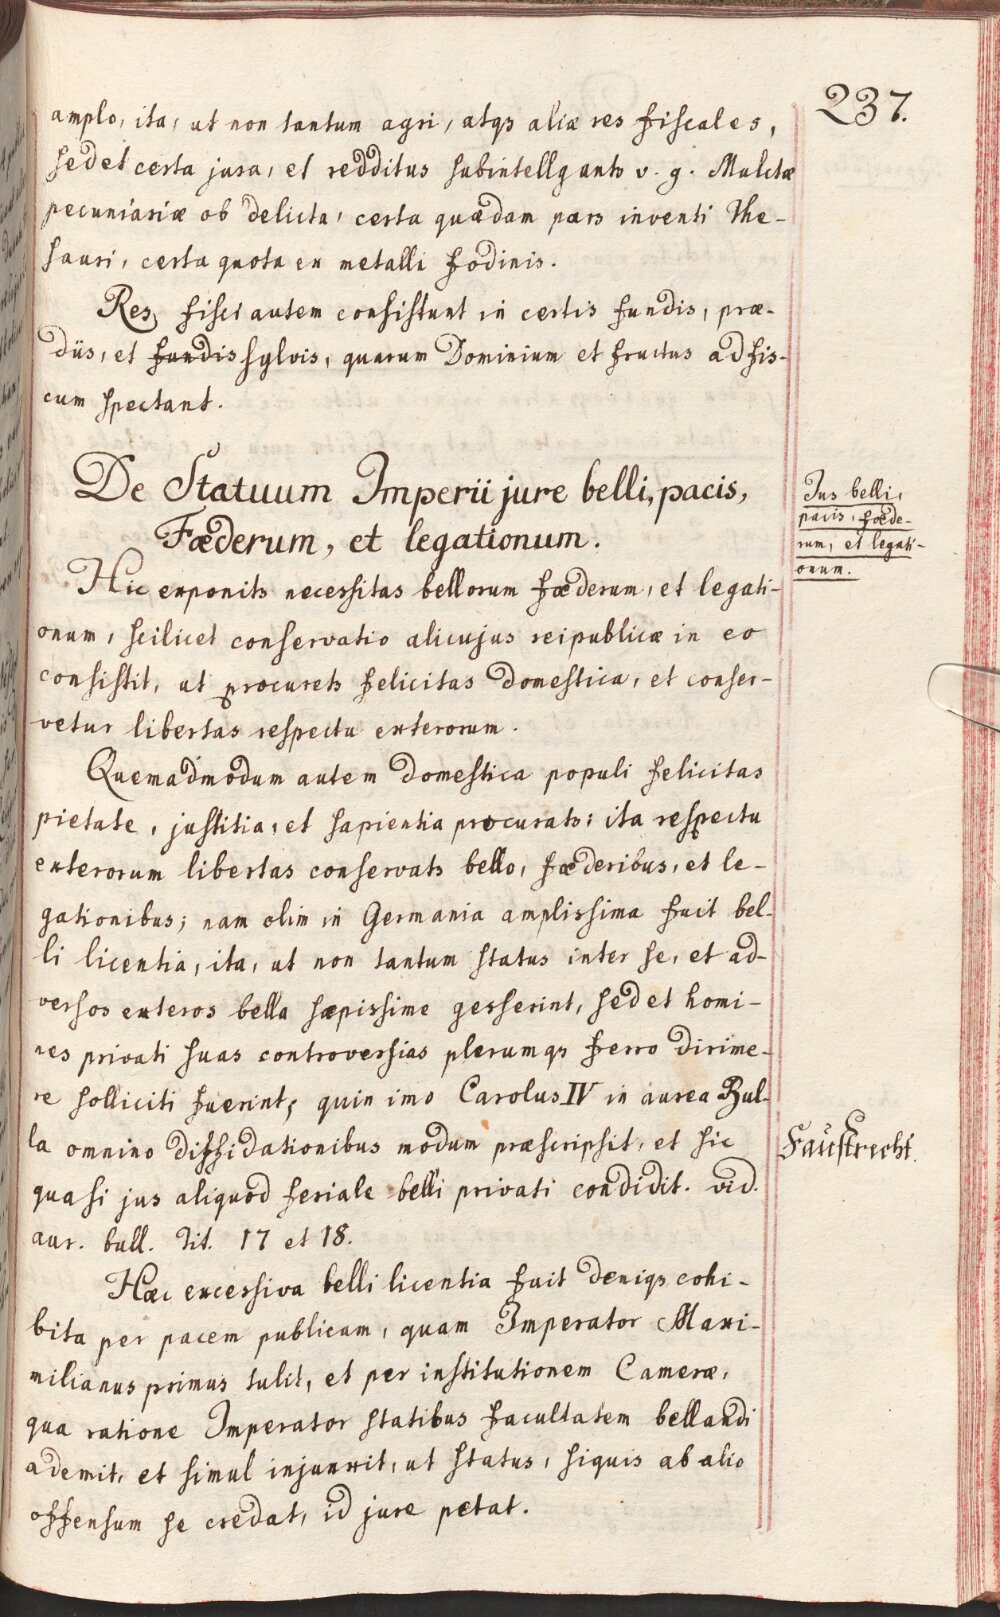 237.
amplo, ita, ut non tantum agri, atqs aliæ res fiscales,
sed et certa jura, et redditus subintellgantr v. g. Mulctæ
pecuniariæ ob delicta, certa quædam pars inventi the-
sauri, certa quota ex metalli fodinis.
Res fisci autem consistunt in certis fundis, præ-
diis, et fundis sylvis, quarum Dominium et fructus ad fis-
cum spectant.
De Statuum Imperii jure belli, pacis,
Fæderum, et legationum.
Jus belli,
pacis, fœde-
rum, et legati-
onum.
Hic exponitr necessitas bellorum fæderum, et legati-
onum, scilicet conservatio alicujus reipublicæ in eo
consistit, ut procuretr felicitas domestica, et conser-
vetur libertas respectu exterorum.
Quemadmodum autem domestica populi felicitas
pietate, justitia, et sapientia procuratr: ita respectu
exterorum libertas conservatr bello, fæderibus, et le-
gationibus; nam olim in Germania amplissima fuit bel-
li licentia, ita, ut non tantum status inter se, et ad-
versos exteros bella sæpissime gesserint, sed et homi-
nes privati suas controversias plerumqs ferro dirime-
re solliciti fuerint, quin imo Carolus IV in aurea Bul-
la omnino diffidationibus modum præscripsit, et sic
Faustrecht.
quasi jus aliquod feriale belli privati condidit. vid.
aur. bull. Tit. 17 et 18.
Hæc excessiva belli licentia fuit deniqs cohi-
bita per pacem publicam, quam Imperator Maxi-
milianus primus tulit, et per institutionem Cameræ,
qua ratione Imperator statibus facultatem bellandi
ademit, et simul injunxit, ut status, siquis ab alio
offensum se credat, id jure petat.